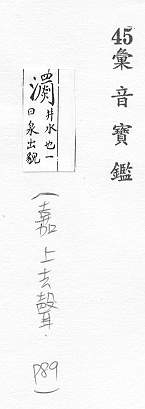 45彙音寶鑑
瀱
井水也一
曰泉出貌
(嘉上去聲. P89)